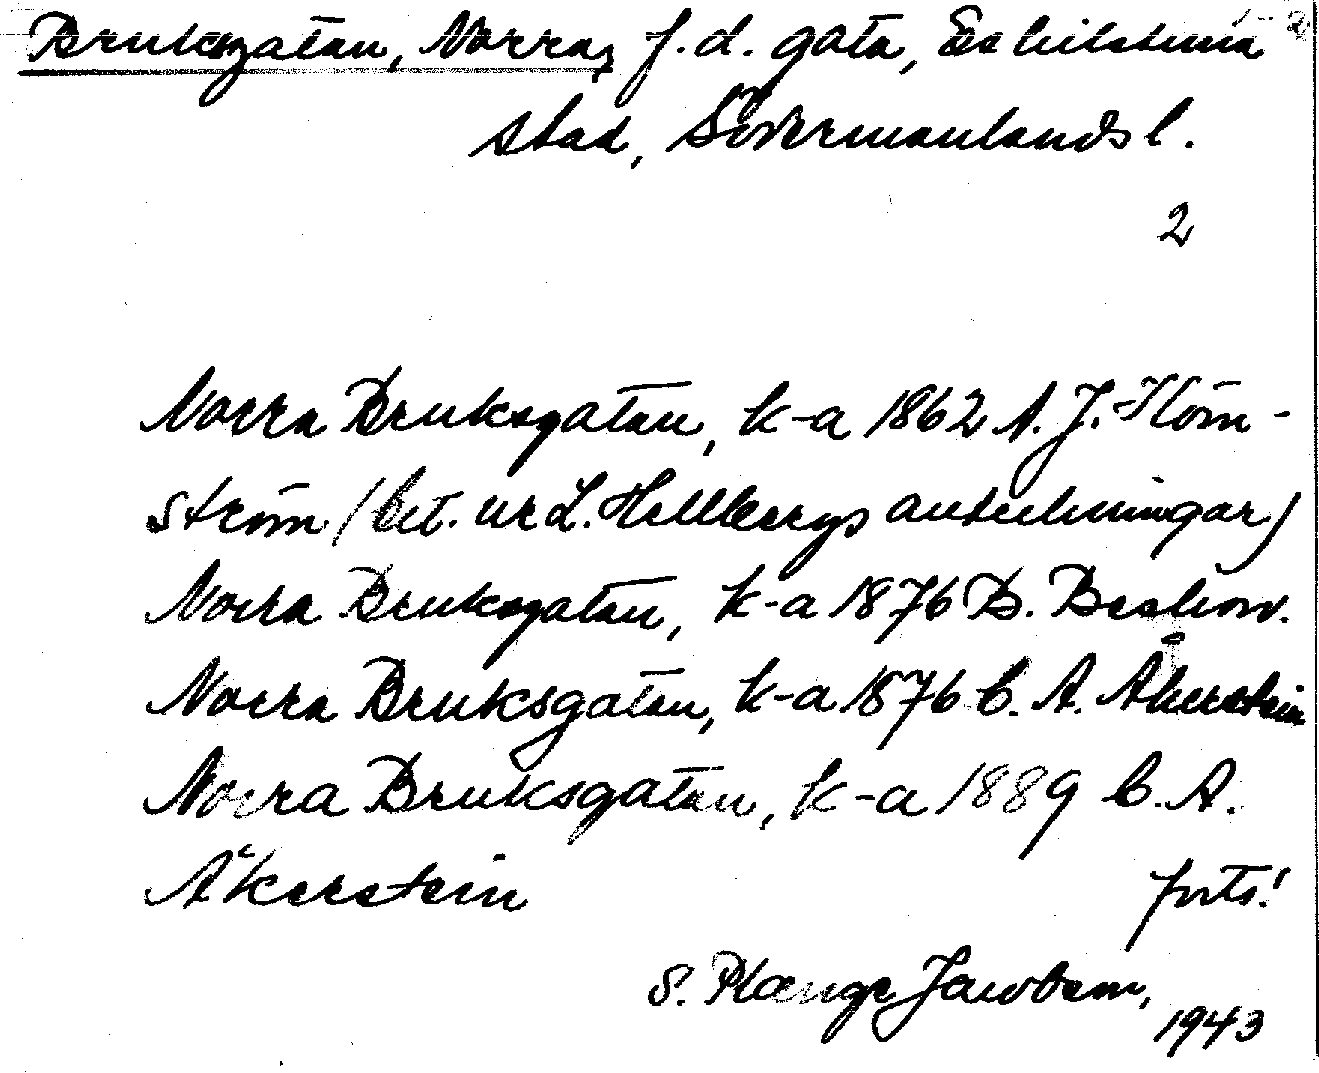 Bruksgatan, Norra, f.d. gata, Eskilstuna
stad, Södermanlands l.
2
Norra Bruksgatan, k-a 1862 A. J. Höm-
ström (bet. ur L. Hellbergs anteckningar)
Norra Bruksgatan, k-a 1876 B. Beskow.
Norra Bruksgatan, k-a 1876 C. A. Åkerstein
Norra Bruksgatan, k-a 1889 C. A.
Åkerstein forts!
S. Plænge Jacobson,
1943